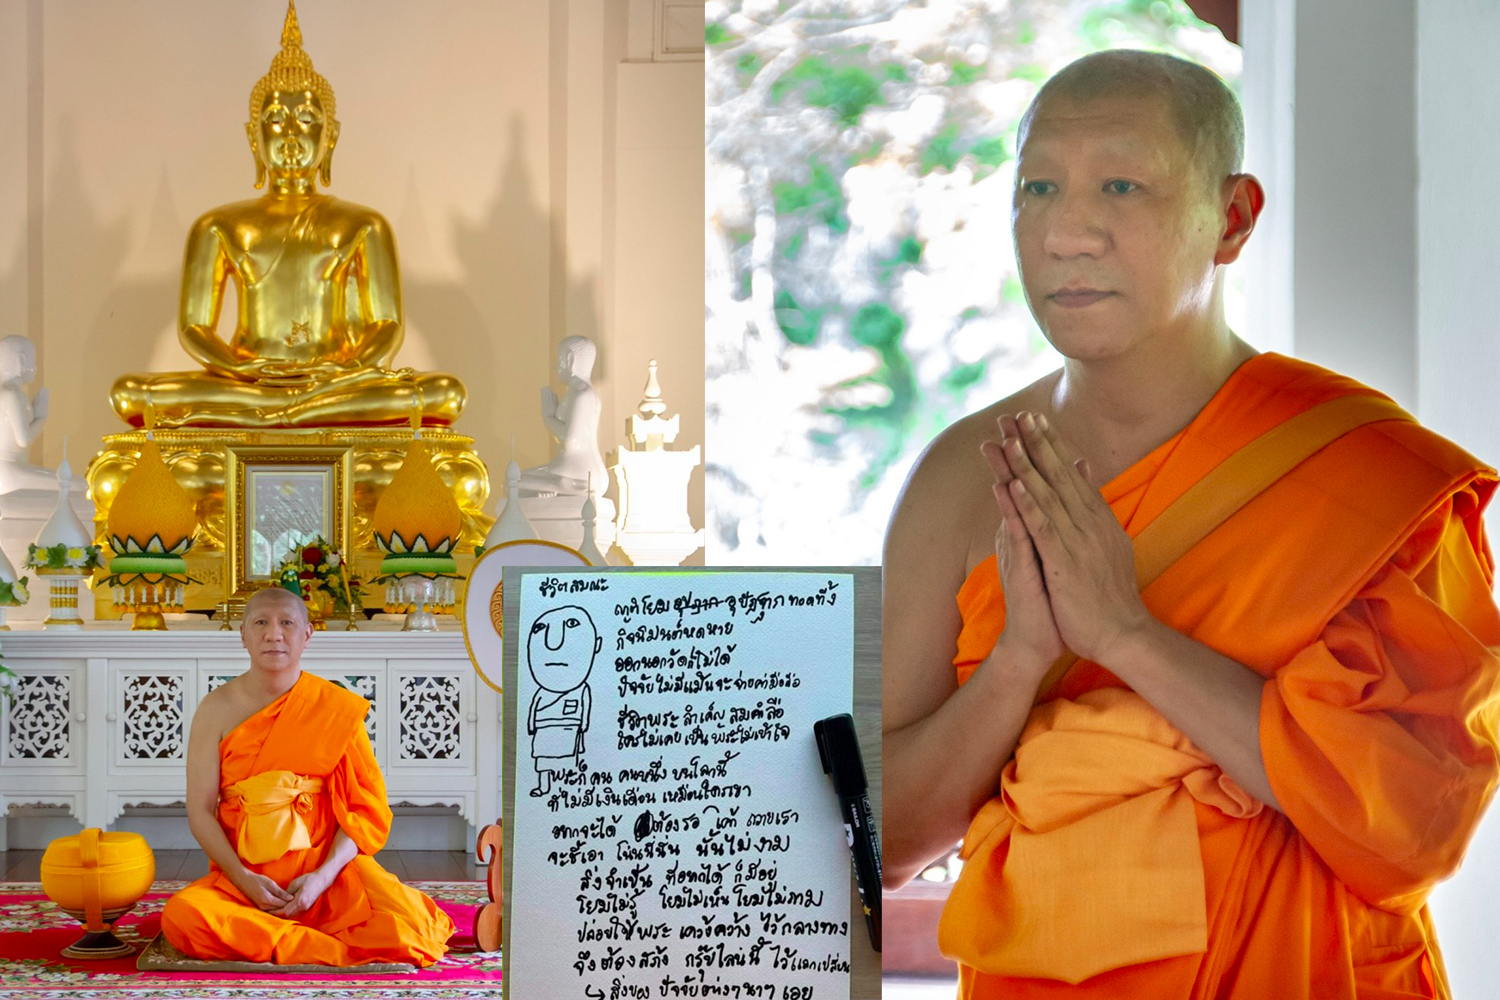 ชีวิตสมณะ
ญาติโยม อุปฐาก อุปัฏฐาก ทอดทิ้ง
กิจนิมนต์หดหาย
ออกนอกวัดก็ไม่ได้
ปัจจัยไม่มีแม้นจะจ่ายค่ามือถือ
ชีวิตพระ สำคัญ สมคำลือ
ใครไม่เคย เป็น พระไม่เข้าใจ
พระก็ คน คนหนึ่ง บนโลกนี้
ที่ไม่มีเงินเดือน เหมือนใครเขา
อยากจะได้ ต้องรอ เค้า ถวายเรา
จะชี้เอา โน่นนี่นั่น นั้นไม่งาม
สิ่งจำเป็น ที่อยากได้ ก็มีอยู่
โยมไม่รู้ โยมไม่เห็น โยมไม่ถาม
ปล่อยให้พระ เคว้งคว้าง ไว้กลางทาง
จึงต้องสร้าง กรุ๊ปไลน์นี้ ไว้แลกเปลี่ยน
↳ สิ่งของ ปัจจัยต่างๆนาๆ เอย